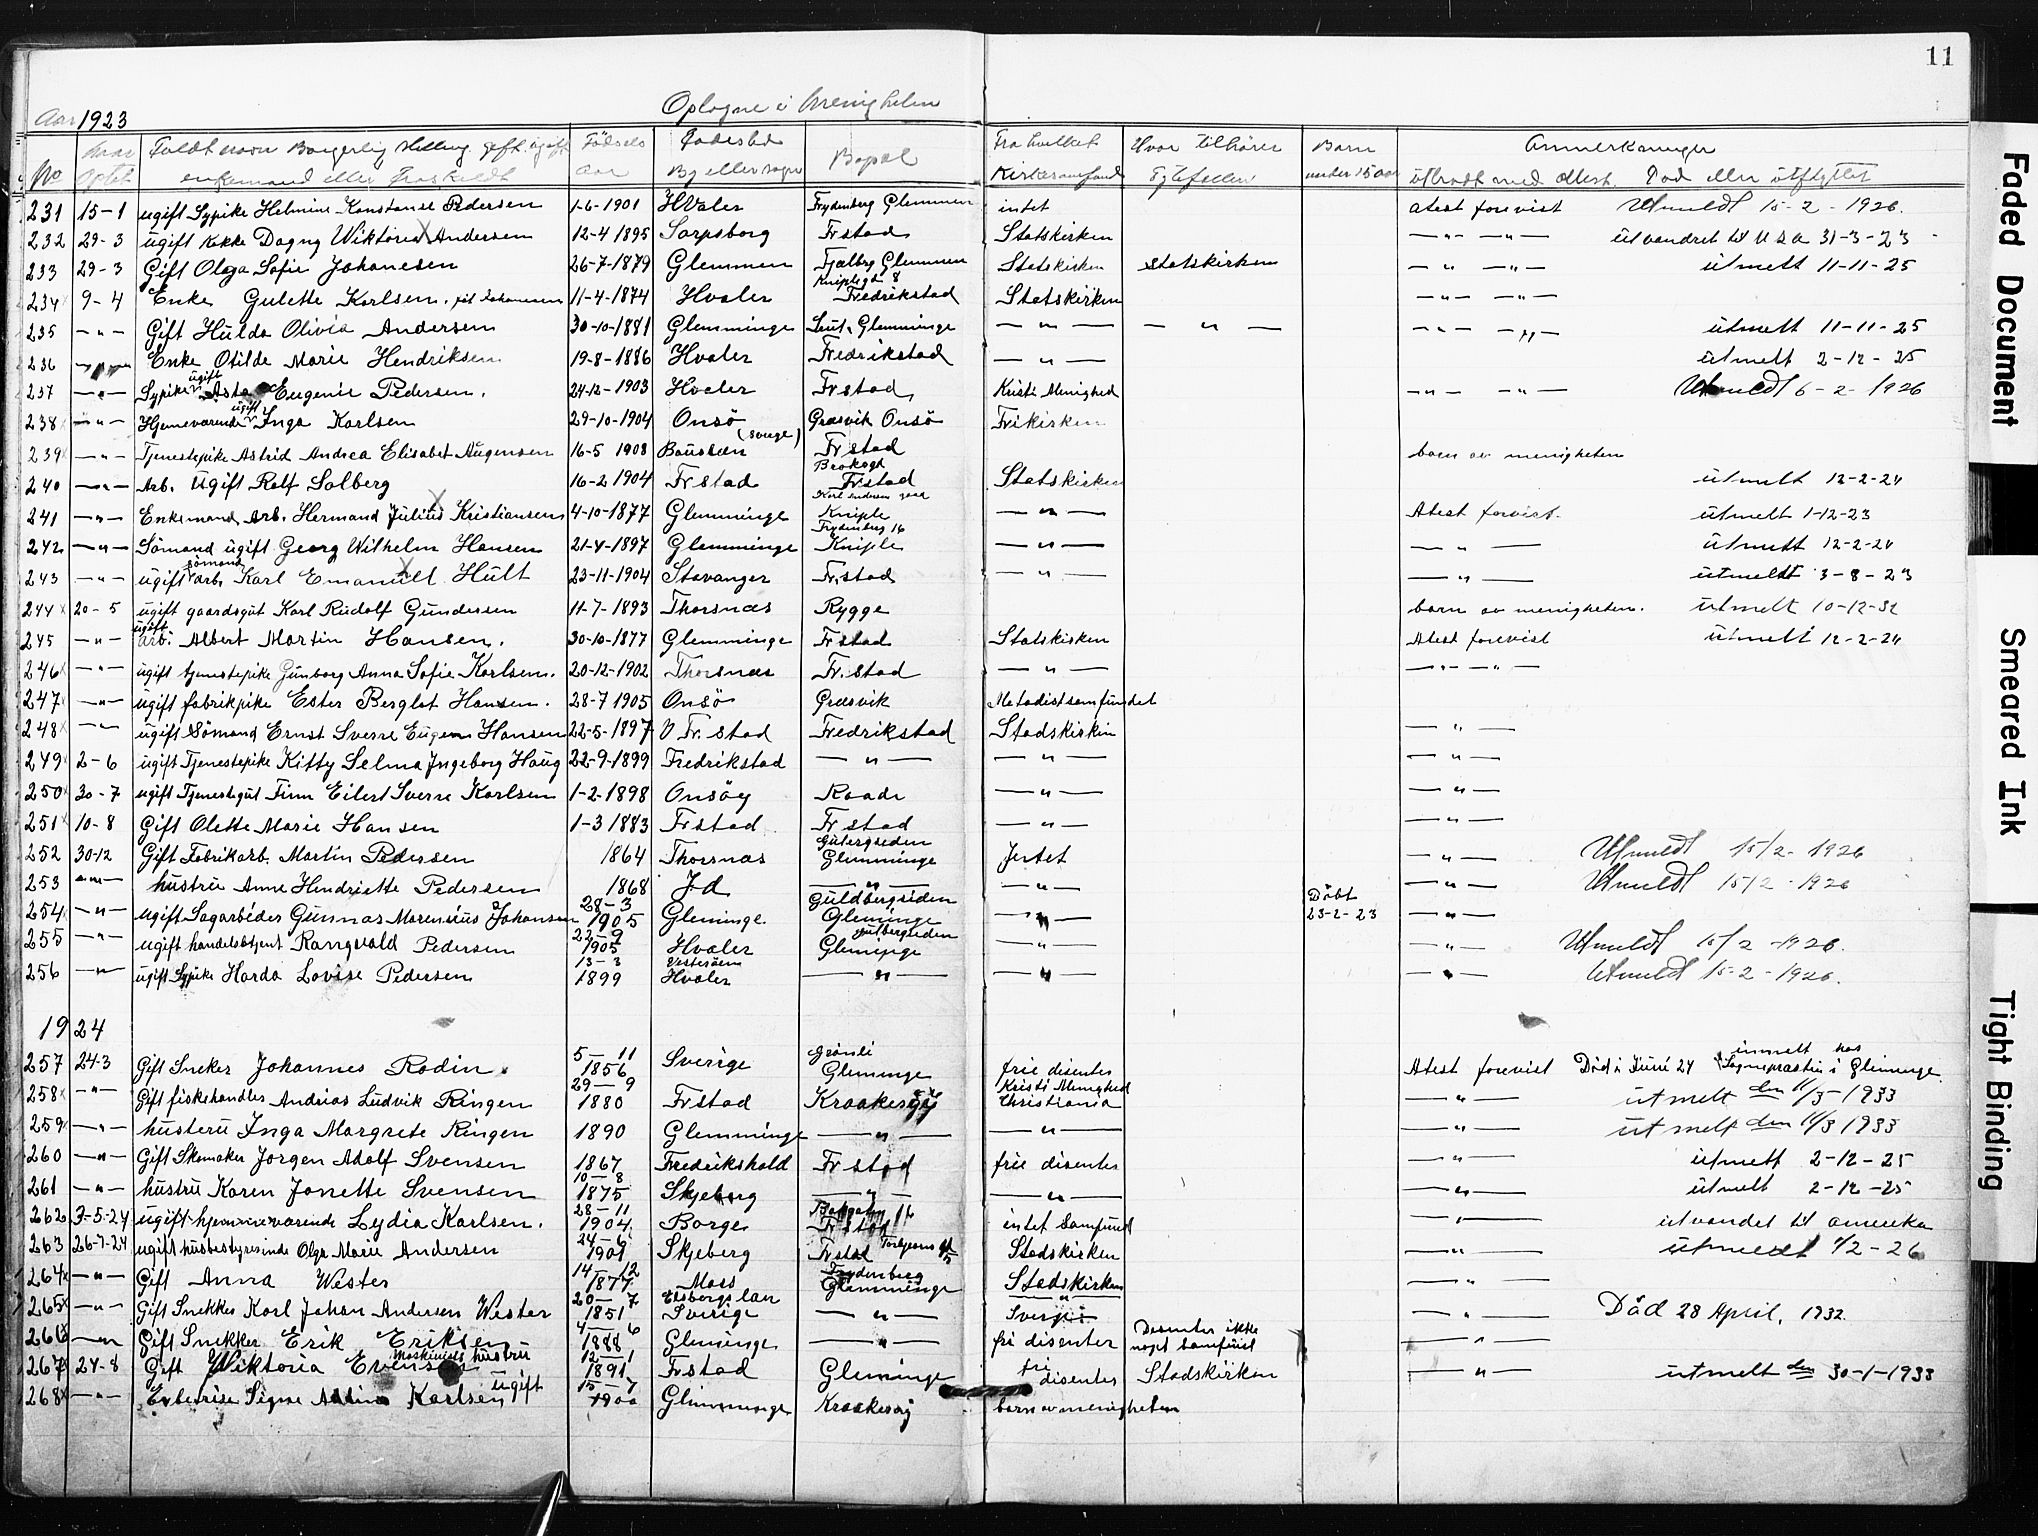 11
Optagne i menigheten
Aar 1923
No | naar optat | Fuldt navn Borgerlig stilling gift ugift enkemand eller fraskildt | Fødsels aar | Fødested By eller sogn | Bopæl | Fra hvilket Kirkesamfund | Hvor tilhører | Barn under 15 aar | Anmerkninger utbradt med attest. Død eller utflyttet
231 | 15-1 | ugift Sypike Helmine Konstanse Pedersen | 1-6-1901 | Hvaler | Frydenberg Glemmen | intet | atest forevist Utmeldt 15-2-1926.
232 | 29-3 | ugift Kokke Dagny Wiktoria Andersen | 12-4 1895 | Sarpsborg | Frstad | Statskirken | —"— —"— utvandret til USA 31-3-23
233 | 29-3 | Gift Olga Sofie Johanesen | 26-7-1879 | Glemmen | Fjælbrg Glemmen | Statskirken | Statskirken | —"— —"— utmelt 11-11-25
234 | 9-4 | Enke Gulette Karlsen. føt Johanesen | 11-4-1874 | Hvaler | Kniplegd 8 Fredrikstad | Statskirken | —"— —"—
235 | —"— | Gift Hulda Olivia Andersen | 30-10-1881 | Glemminge | Glemminge | —"— | —"— | —"— —"— utmelt 11-11-25
236 | —"— | Enke Otilde Marie Hendriksen | 19-8-1886 | Hvaler | Fredrikstad | —"— | utmelt 2-12-25
237 | —"— | Sypike ugift Asta Eugenie Pedersen. | 24-12-1903 | Hvaler | Frstad | Kristi Menighed | —"— —"— Utmeldt 6-2-1926
238 | —"— | Hjemeværende ugift Inga Karlsen | 29-10-1904 | Onsö | Græsvik Onsö | Frikirken
239 | —"— | Tjenestepike Astrid Andrea Elisabet Augensen | 16-5 1908 | (Sverge) | Frstad | barn av menigheten
240 | —"— | Arb. Ugift Rolf Solberg | 16-2 1904 | Frstad | Brokegd Frstad | Statskirken | utmelt 12-2-24
241 | —"— | Enkemand Arb. Hermand Julius Kristiansen | 4-10-1877 | Glemminge | Kniple | —"— | Atest forvist. utmelt 1-12-23
242 | —"— | Sömand ugift Georg Wilhelm Hansen | 21-4-1897 | Glemminge | Frydenberg 16 Kniple | —"— | —"— utmelt 12-2-24
243 | —"— | ugift sömand arb. Karl Emanuelt Hult | 23-11-1904 | Stavanger | Fr.stad | —"— | —"— utmeldt 3-8-23
244 | 20-5 | ugift gaardsgut Karl Rudolf Gundersen | 11-7-1893 | Thorsnæs | Rygge | barn av menigheten. utmelt 10-12-32
245 | —"— | ugift arb. Albert Martin Hansen. | 30-10-1877 | Glemminge | Frstad | Statskirken | Atest forevist utmelt 12-2-24
246 | —"— | ugift tjenestepike Gunborg Anna Sofie Karlsen. | 20-12-1902 | Thorsnæs | Fr.stad | —"— | —"— —"—
247 | —"— | ugift fabrikpike Ester Berglot Hansen. | 28-7 1905 | Onsö | Græsvik | Metodistsamfundet
248 | —"— | ugift Sömand Ernst Sverre Eugen Hansen | 22-5-1897 | V Fr.stad | Fredrikstad | Stadskirkin | —"—
249 | 2-6 | ugift Tjenestepike Kitty Selma Ingeborg Haug | 22-9-1899 | Fredrikstad | —"— | —"— | —"—
250 | 30-7 | ugift Tjenestegut Finn Eilert Sverre Karlsen | 1-2-1898 | Onsöy | Raade | —"— | —"—
251 | 10-8 | Gift Olette Marie Hansen | 1-3 1883 | Frstad | Frstad | —"— | —"—
252 | 30-12 | Gift Fabrikarb. Martin Pedersen | 1864 | Thorsnæs | Glemminge | Intet | —"— Utmeldt 15/2-1926
253 | —"— | hustru Anne Hendriette Pedersen | 1868 | Id | —"— | —"— | —"— Utmeldt 15/2-1926
254 | —"— | ugift Sagarbeider Gunnar Marenius Johansen | 28-3 1905 | Gleminge | Guldbergsiden Gleminge | —"— | Döbt 23-2-23 | —"—
255 | —"— | ugift handelsbtjent Rangvald Pedersen | 22-9 1905 | Hvaler | Gutbergseden Gleminge | —"— | —"— Utmeldt 15/2-1926.
256 | —"— | ugift Sypike Harda Lovise Pedersen | 13-3 1899 | Vesteröen Hvaler | —"— | —"— | —"— Utmeldt 15-2-1926.
1924
257 | 24-3 | Gift Sneker Johannes Rodin | 5-11 1856 | Sverige | Grönli Gleminge | frie disenter | Atest forevist Död i Juni 24 inmelt hos Sogneprosten i Gleminge.
258 | —"— | Gift fiskehandler Andrias Ludvik Ringen | 29-9 1880 | Frstad | Kraakeröy | Kristi Menighed Christiania | —"— utmelt den 11/3-1933
259 | —"— | husteru Inga Margrete Ringen | 1890 | Glemminge | —"— | —"— | —"— utmelt den 11/3 1933
260 | —"— | Gift Skomaker Jörgen Adolf Svensen | 1867 | Fredrikshald | Frstad | frie disenter | —"— utmelt 2-12-25
261 | —"— | hustru Karen Jonette Svensen | 10-8 1875 | Skjeberg | —"— | —"— | —"— utmelt 2-12-25
262 | 3-5-24 | ugift hjemmeværende Lydia Karlsen. | 28-11 1904 | Borge | Frstad | intet Samfund | —"— utvandet til amerika
263 | 26-7-24 | ugift husbestyrerinde Olga Marie Andersen | 24-6 1901 | Skjeberg | Frstad | Stadskirken | —"— utmeldt 1/2-26
264 | —"— | Gift Anna Wester | 14-12 1877 | Moss | Frydenberg Glemminge | Stadskirken | —"—
265 | —"— | Gift Snekker Karl Johan Andersen Wester | 20-7 1851 | Elsborgs lan Sverige | —"— | —"— Sverjes | —"— Död 28 April, 1932.
266 | —"— | Gift Snekker Erik Eriksen | 4-6 1888 | Gleminge | —"— | fri disenter | Disenter ikke nogt Samfund | —"—
267 | 24-8 | Gift Wiktoria Evensen Maskinists hustru | 12-1 1891 | Frstad | Gleminge | fri disenter | Stadskirken | —"— utmelt den 30-1-1933
268 | —"— | Signe Karlsen ugift | 15-7 1900 | Glemminge | Kraakeröy | barn av menigheten
Faded Document
Smeared Ink
Tight Binding